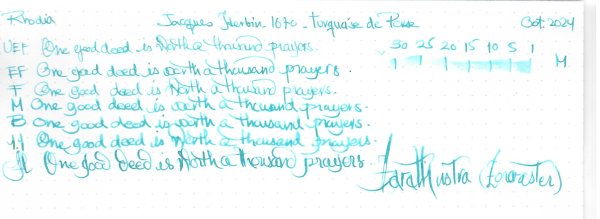 Rhodia Jacques Herbin 1670 - Turquoise de Perse Oct. 2024
UEF One good deed is worth a thousand prayers. 30 25 20 15 10 5 1
EF One good deed is worth a thousand prayers. M
F One good deed is worth a thousand prayers.
M One good deed is worth a thousand prayers.
B One good deed is worth a thousand prayers.
1.1 One good deed is worth a thousand prayers.
One good deed is worth a thousan prayers. Zarathustra (Zoroaster)